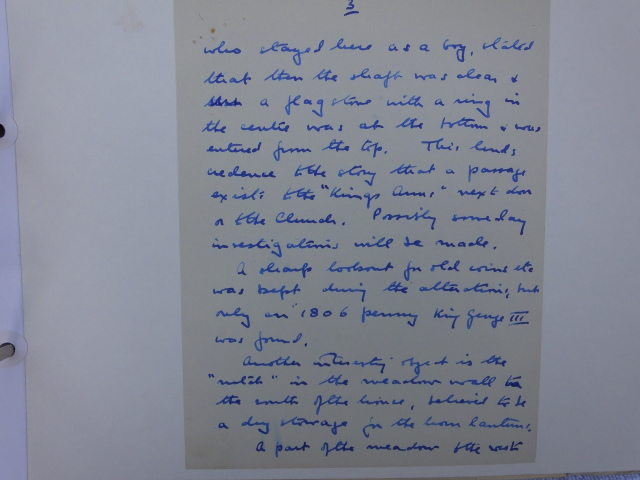 3
who stayed here as a boy, stated
that then the shaft was clear &
a flagstone with a ring in
the centre was at the bottom & was
entered from the top. This lends
credence to the story that a passage
exists to the "Kings Arms" next door
or to the Church. Possibly someday
investigations will be made.
A sharp lookout for old coins etc
was kept during the alterations, but
only an 1806 penny King George III
was found.
Another interesting object is the
in the meadow wall to
the south of the house, believed to be
a dry storage for the horn lanterns.
A part of the meadow to the west